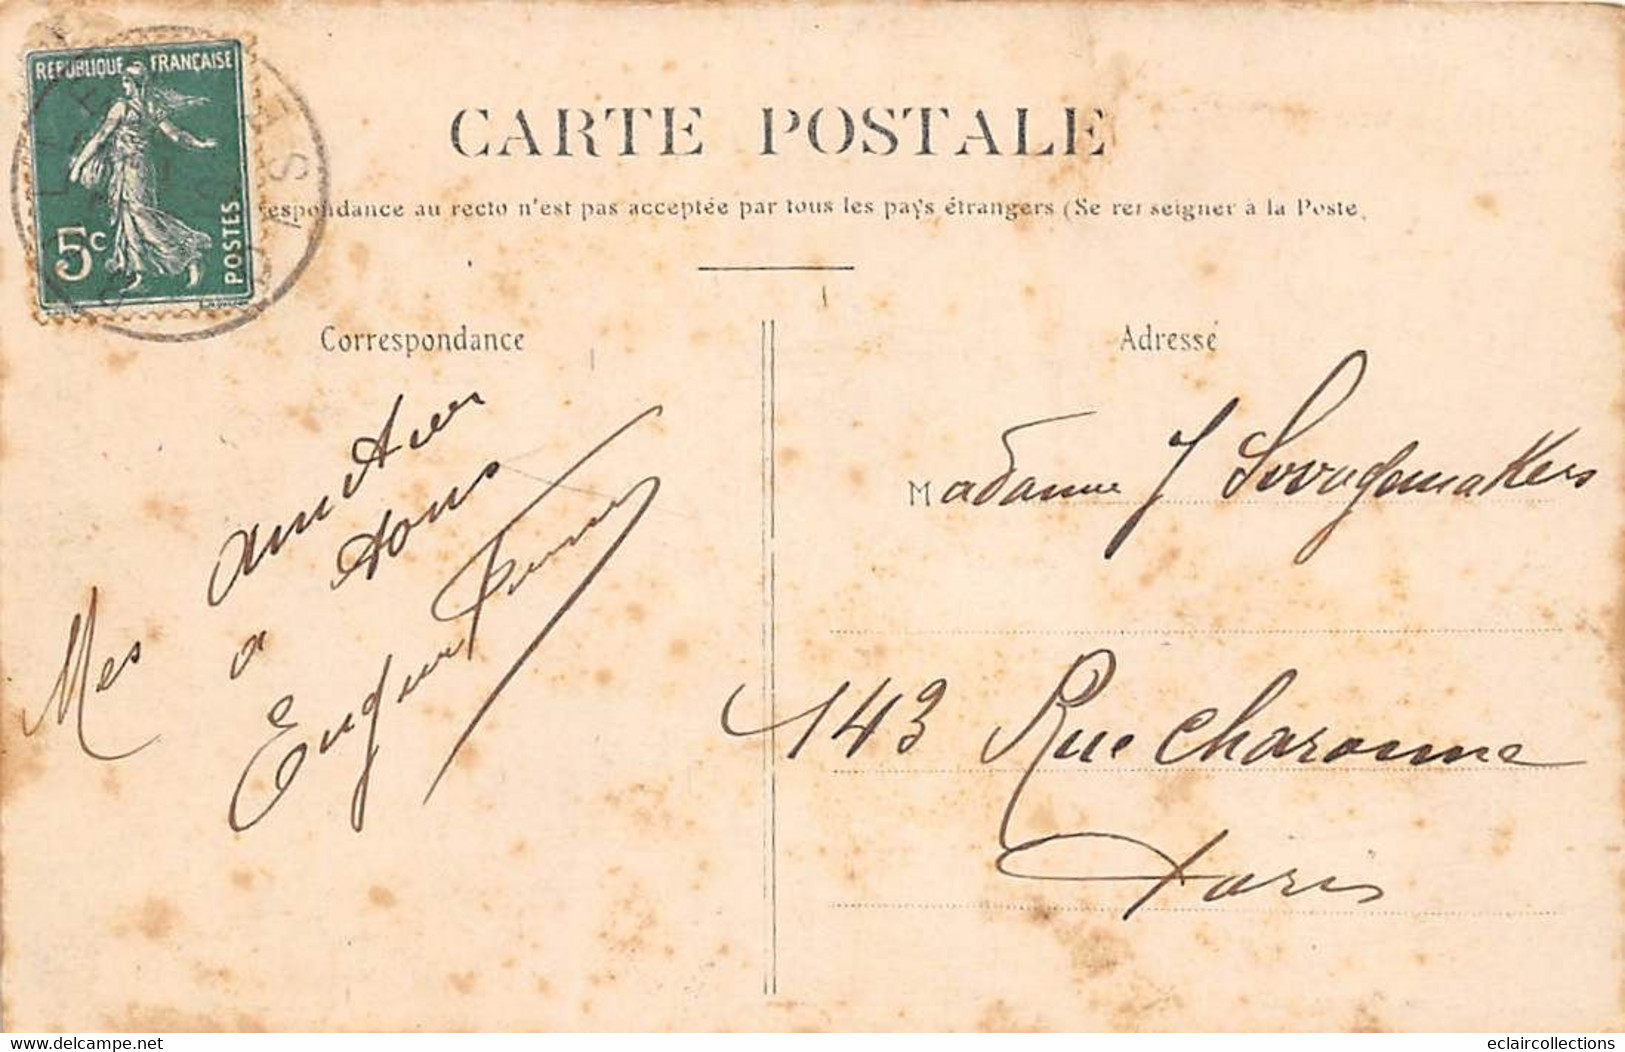 REPUBLIQUE FRANÇAISE
5c
POSTES
CARTE POSTALE
espondance au recto n'est pas acceptée par tous les pays étrangers (Se renseigner à la Poste
Correspondance
Adresse
Mes amitiés
a tous
Madame J
143 Rue Charonne
Paris
www.delcampe.net
eclaircollections